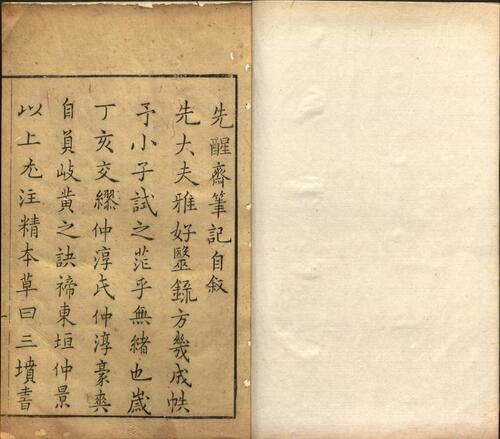 先醒齋筆記自叙
先大夫雅好毉鈲方幾成帙
予小子試之茫乎無緒也歲
丁亥交繆仲淳氏仲淳豪爽
自負岐黄之訣禘東垣仲景
以上尤注精本草曰三墳書